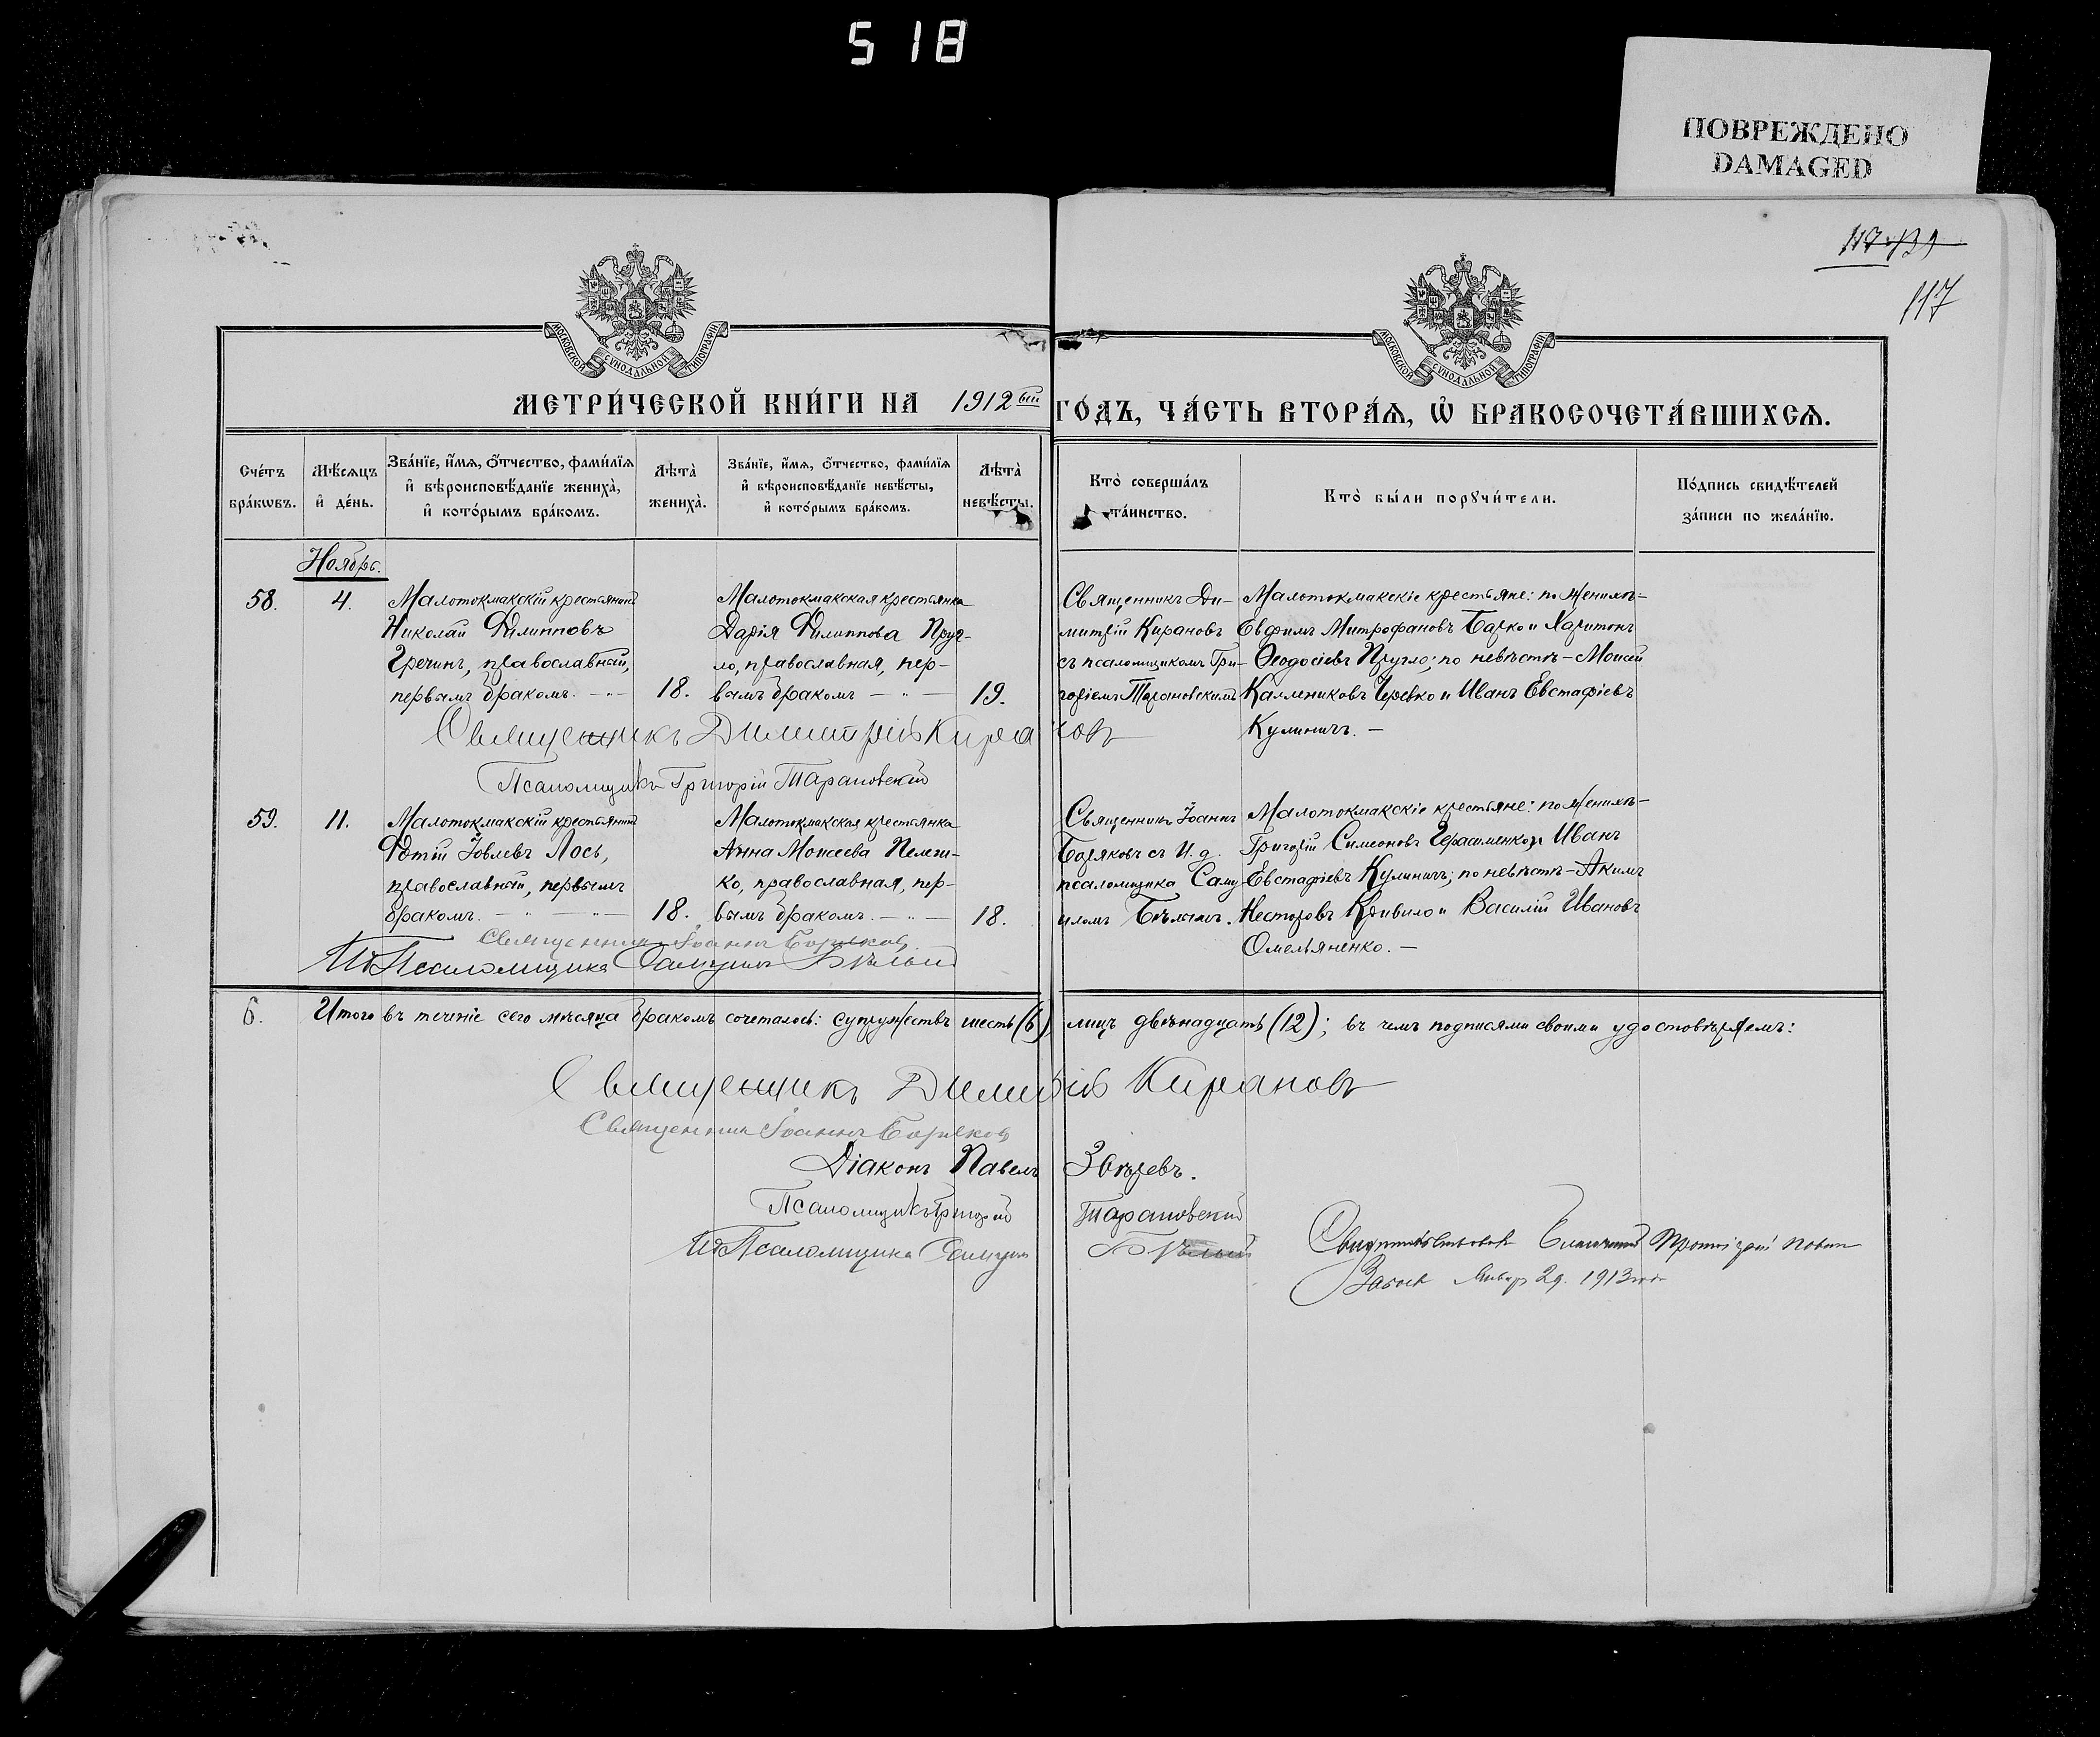 518
ПОВРЕЖДЕНО
DAMAGED
117
МОСКОВСКОЙ СѴНОДАЛЬНОЙ ТИПОГРАФІИ
МОСКОВСКОЙ СѴНОДАЛЬНОЙ ТИПОГРАФІИ
МЕТРИ́ЧЕСКОЙ КНИ́ГИ НА 1912ый ГО́ДЪ, ЧА́СТЬ ВТОРА́Ѧ, Ѽ БРАКОСОЧЕТА́ВШИХСѦ.
Сче́тъ бра́кѡвъ.
Мѣ́сѧцъ и҆ де́нь.
Зва́нїе, и҆́мѧ, ѻ҆́тчество, фами́лїѧ и҆ вѣроисповѣ́данїе жениха̀, и҆ кото́рымъ бра́комъ.
Лѣта̀ жениха̀.
Зва́нїе, и҆́мѧ, ѻ҆́тчество, фами́лїѧ и҆ вѣроисповѣ́данїе невѣ́сты, и҆ кото́рымъ бра́комъ.
Лѣта̀ невѣ́сты.
Кто̀ соверша́лъ та́инство.
Кто̀ бы́ли порꙋчи́тели.
По́дпись свидѣ́телей за́писи по жела́нїю.
Ноябрь.
58.
4.
Малотокмакскій крестьянинъ
Николай Филипповъ
Гречинъ, православный,
первымъ бракомъ.
18.
Малотокмакская крестьянка
Дарія Филиппова Пруг-
ло, православная, пер-
вымъ бракомъ
19.
Священникъ Ди-
митрій Кирановъ
съ псаломщикомъ Гри-
горіемъ Тарановскимъ
Малотокмакскіе крестьяне: по женихѣ-
Евфимъ Митрофановъ Барко и Харитонъ
Ѳеодосіевъ Пругло; по невѣстѣ - Моисей
Каллениковъ Черевко и Иванъ Евстафіевъ
Кулиничъ. -
Священникъ Димитрій Кирановъ
Псаломщикъ Григорій Тарановскій
59.
11.
Малотокмакскій крестьянинъ
Фотій Іовлевъ Лось,
православный, первымъ
бракомъ.
18.
Малотокмакская крестьянка
Анна Моисеева Пелеш-
ко, православная, пер-
вымъ бракомъ.
18.
Священникъ Іоаннъ
Боряковъ съ И. д.
псаломщика Саму
иломъ Бѣлымъ.
Малотокмакскіе крестьяне: по женихѣ-
Григорій Симеоновъ Герасименко и Иванъ
Евстафіевъ Кулиничъ; по невѣстѣ - Акимъ
Несторовъ Кривило и Василій Ивановъ
Омельяненко. -
Священникъ Іоаннъ Боряковъ
Ид Псаломщика Самуилъ Бѣлый
6. Итого въ теченіе сего мѣсяца бракомъ сочеталось: супружествъ шесть (6), лицъ двѣнадцать (12); въ чемъ подписями своими удостовѣряемъ:
Священникъ Димитрій Кирановъ
Священникъ Іоаннъ Боряковъ
Діаконъ Павелъ Звѣревъ.
Псаломщикъ Григорій Тарановскій
Ид Псаломщика Самуилъ Бѣлый
Свидѣтельствовалъ Благочинный Протоіерей
Январ 29. 1913 года